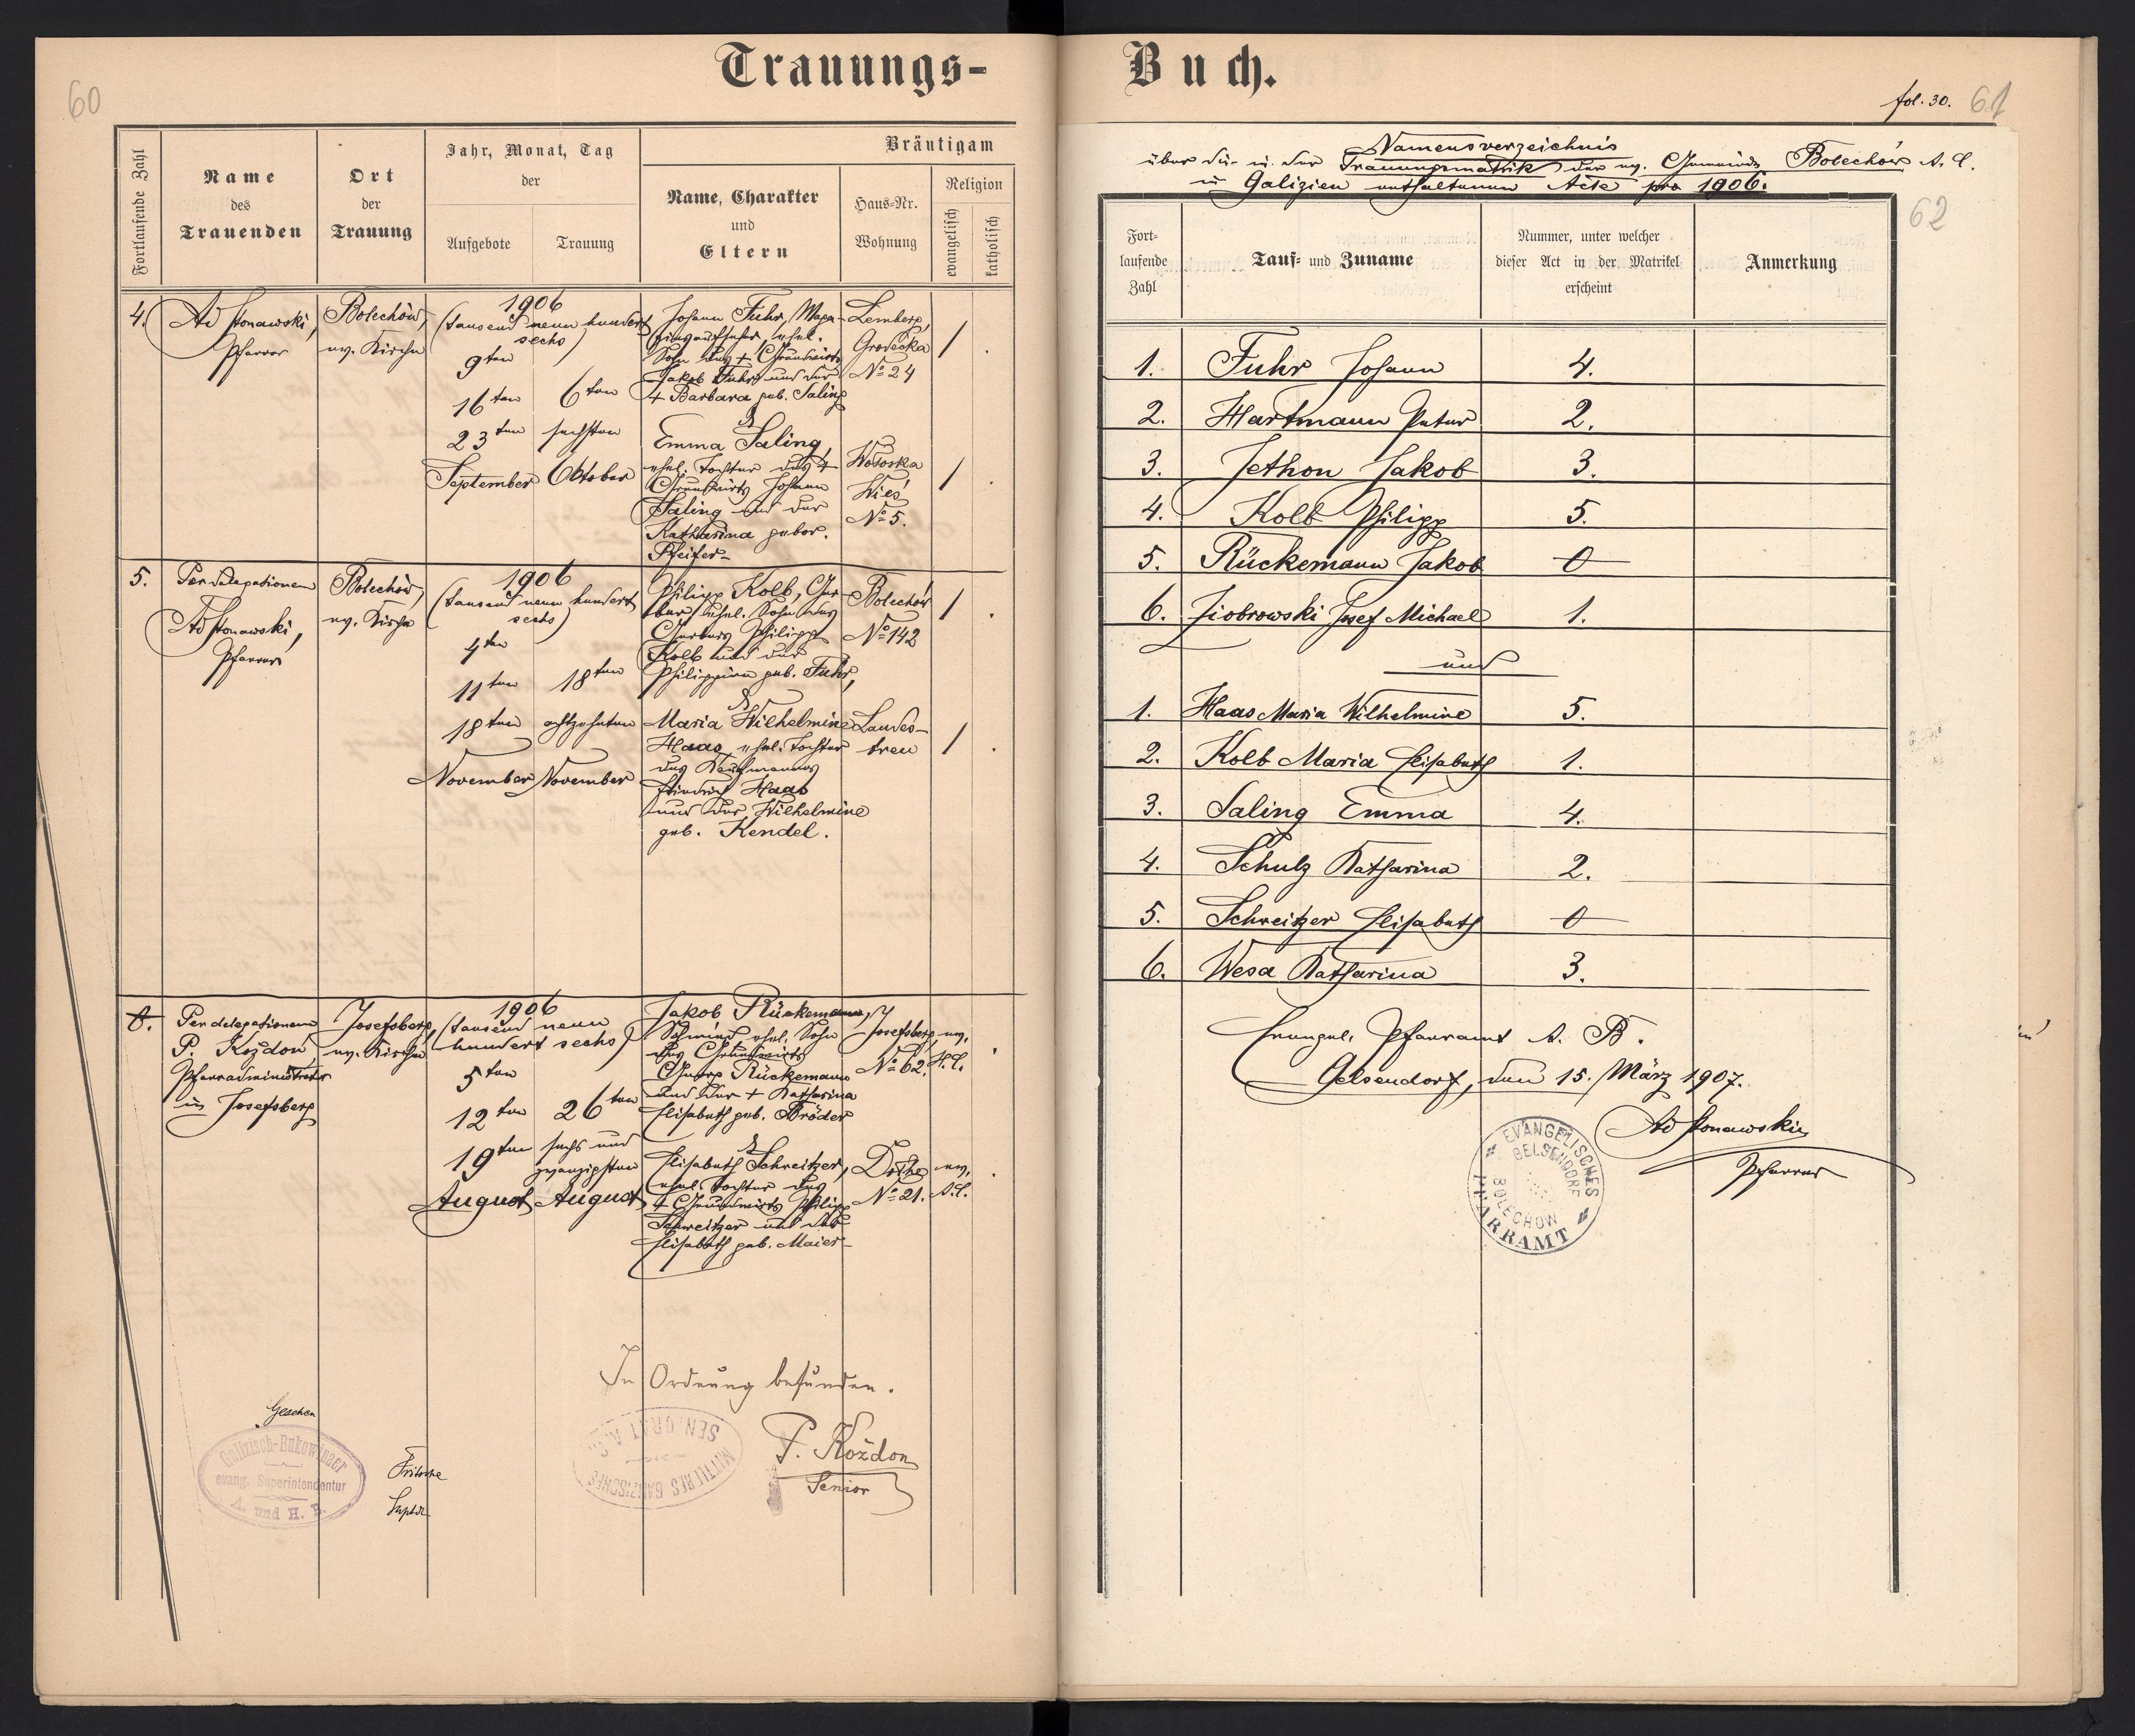 Trauungs-
60
Fortlaufende Zahl
Name
des
Trauenden
Ort
der
Trauung
Jahr, Monat, Tag
der
Aufgebote
Trauung
Bräutigam
Name, Charakter
und
Eltern
Haus-Nr.
Wohnung
Religion
evangelisch
katholisch
4.
Ad Stonawski,
Pfarrer
Bolechów,
ev. Kirche
1906
(tausend neun hundert
sechs)
9ten
16ten
23ten
September
6ten
sechsten
Oktober
Johann Fuhr, Maga-
zinsaufseher, ehel.
Sohn des + Grundwirts
Jakob Fuhr und der
+ Barbara geb. Saling
&
Emma Saling,
ehel. Tochter des +
Grundwirts Johann
Saling und der
Katharina gebor.
Pfeifer
Lemberg,
Grodecka
No 24
Wołoska
Wieś
No 5.
/ .
/ .
5.
Per delegationem
Ad Stonawski,
Pfarrer
Bolechów,
ev. Kirche
1906
(tausend neun hundert
sechs)
4ten
11ten
18ten
November
18ten
achtzehnten
November
Philipp Kolb, Ger-
ber, ehel. Sohn des
Gerbers Philipp
Kolb und der
Philippine geb. Fuhr,
&
Maria Wilhelmine
Haas, ehel. Tochter
des Kaufmannes
Friedrich Haas
und der Wilhelmine
geb. Kendel.
Bolechów
No 142
Landes-
treu
/ .
/ .
0.
Per delegationem
P. Kożdoń
Pfarradministrator
in Josefsberg
Josefsberg,
ev. Kirche
1906
(tausend neun
hundert sechs)
5ten
12ten
19ten
August
26ten
sechs und
zwanzigsten
August
Jakob Rückemann,
Schmied, ehel. Sohn
des Grundwirts
Georg Rückemann
und der + Katharina
Elisabeth geb. Bröder
&
Elisabeth Schweitzer,
ehel. Tochter des
+ Grundwirts Philipp
Schweitzer und der
Elisabeth geb. Maier
Josefsberg
No 62.
ev.
H.C.
No 21.
ev.
A.C.
In Ordnung befunden.
P. Kożdon
Senior
MITTLERES GALIZISCHES
SENIORAT A. C.
Gesehen
Galizisch-Bukowinaer
evang. Superintendentur
A. und H. B.
Fritsche
Supdt
Buch.
fol. 30. 61
Namensverzeichnis
über die in der Trauungsmatrik der ev. Gemeinde Bolechów A. C.
in Galizien enthaltenen Acte pro 1906.
62
Fort-
laufende
Zahl
Tauf- und Zuname
Nummer, unter welcher
dieser Act in der Matrikel
erscheint
Anmerkung
1. Fuhr Johann 4.
2. Hartmann Peter 2.
3. Jethon Jakob 3.
4. Kolb Philipp 5.
5. Rückemann Jakob 0
6. Ziobrowski Josef Michael 1.
und
1. Haas Maria Wilhelmine 5.
2. Kolb Maria Elisabeth 1.
3. Saling Emma 4.
4. Schulz Katharina 2.
5. Schweitzer Elisabeth 0
6. Wesa Katharina 3.
Evangel. Pfarramt A. B.
Gelsendorf, den 15. März 1907.
Ad Stonawski
Pfarrer
EVANGELISCHES
PFARRAMT
GELSENDORF
BOLECHOW